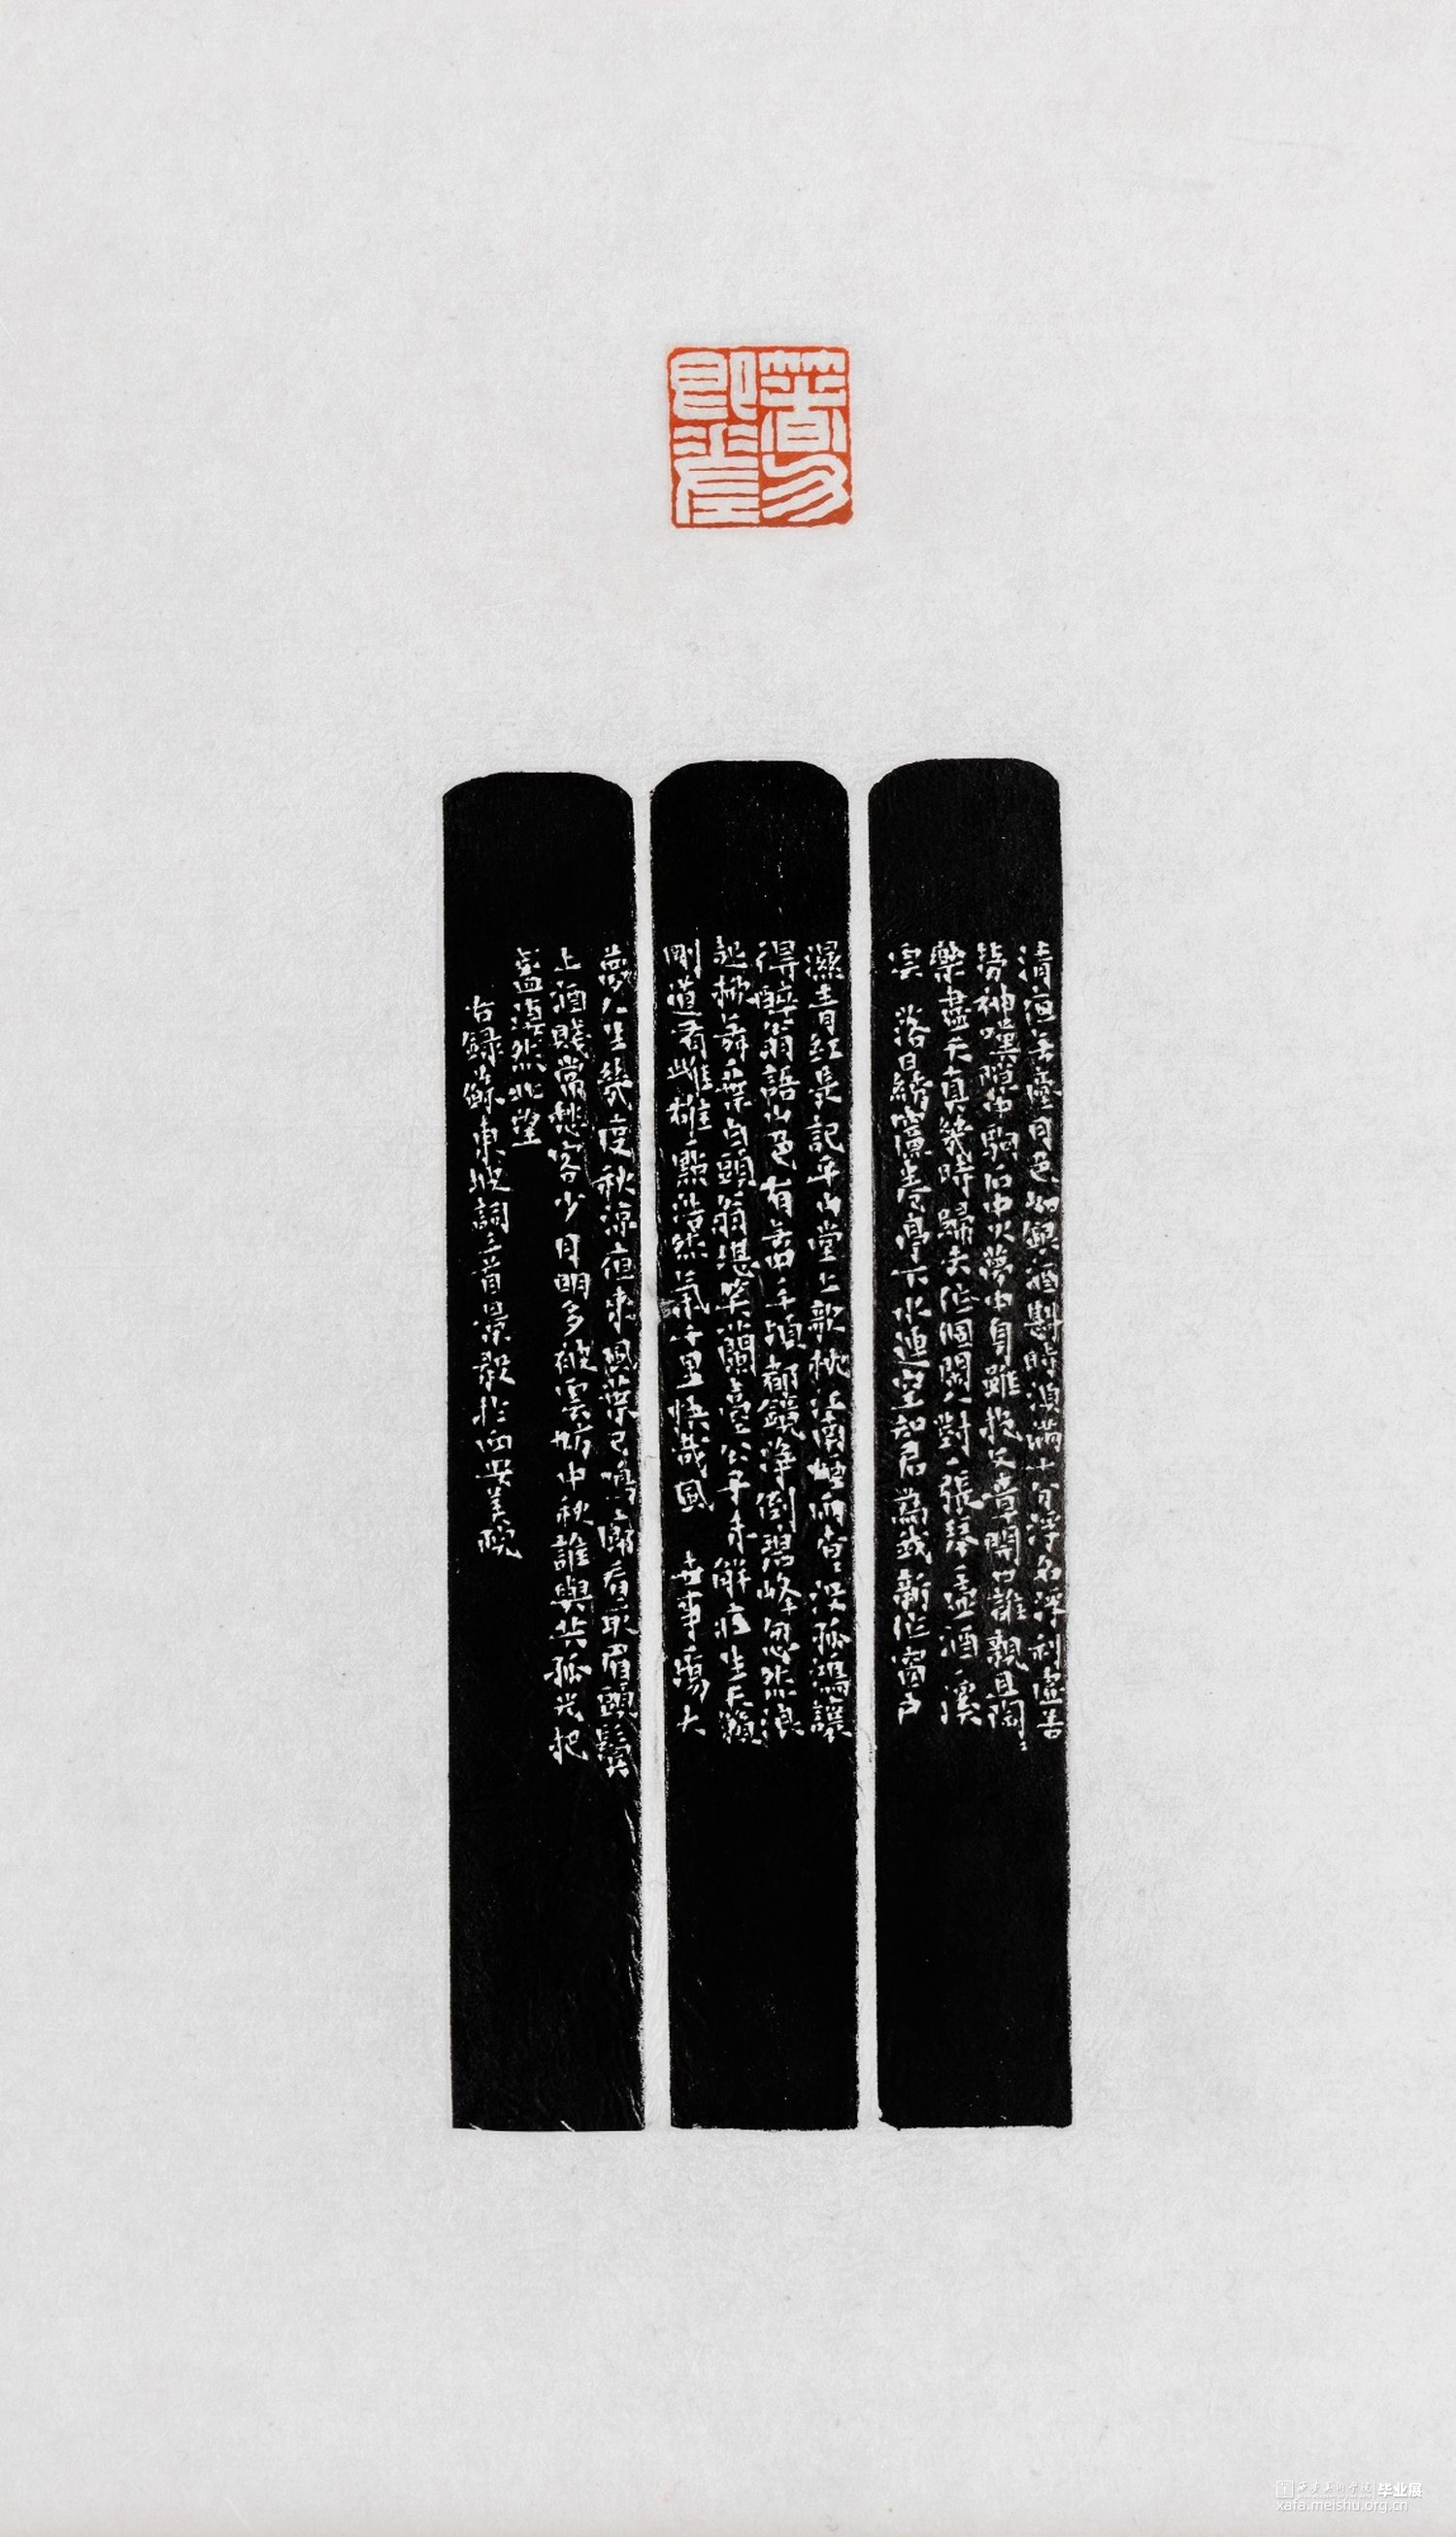 著力
即差
清夜無塵月色如銀酒斟時須滿十分浮名浮利虛苦
勞神嘆隙中駒石中火夢中身雖抱文章開口誰親且陶〻
樂盡天真幾時歸去作個閒人對一張琴一壺酒一溪
雲 落日繡簾卷亭下水連空知君為我新作窗戶
濕青紅長記平山堂上欹枕江南煙雨杳〻沒孤鴻認
得醉翁語山色有無中一千頃都鏡淨倒碧峰忽然浪
起掀舞一葉白頭翁堪笑蘭臺公子未解莊生天籟
剛道有雌雄一點浩然氣千里快哉風 世事一場大
夢人生幾度秋涼夜來風葉已鳴廊看取眉頭鬢
上酒賤常愁客少月明多被雲妨中秋誰與共孤光把
盞淒然北望
右錄蘇東坡詞三首景毅於西安美院
西安美術學院 毕业展
xafa.meishu.org.cn